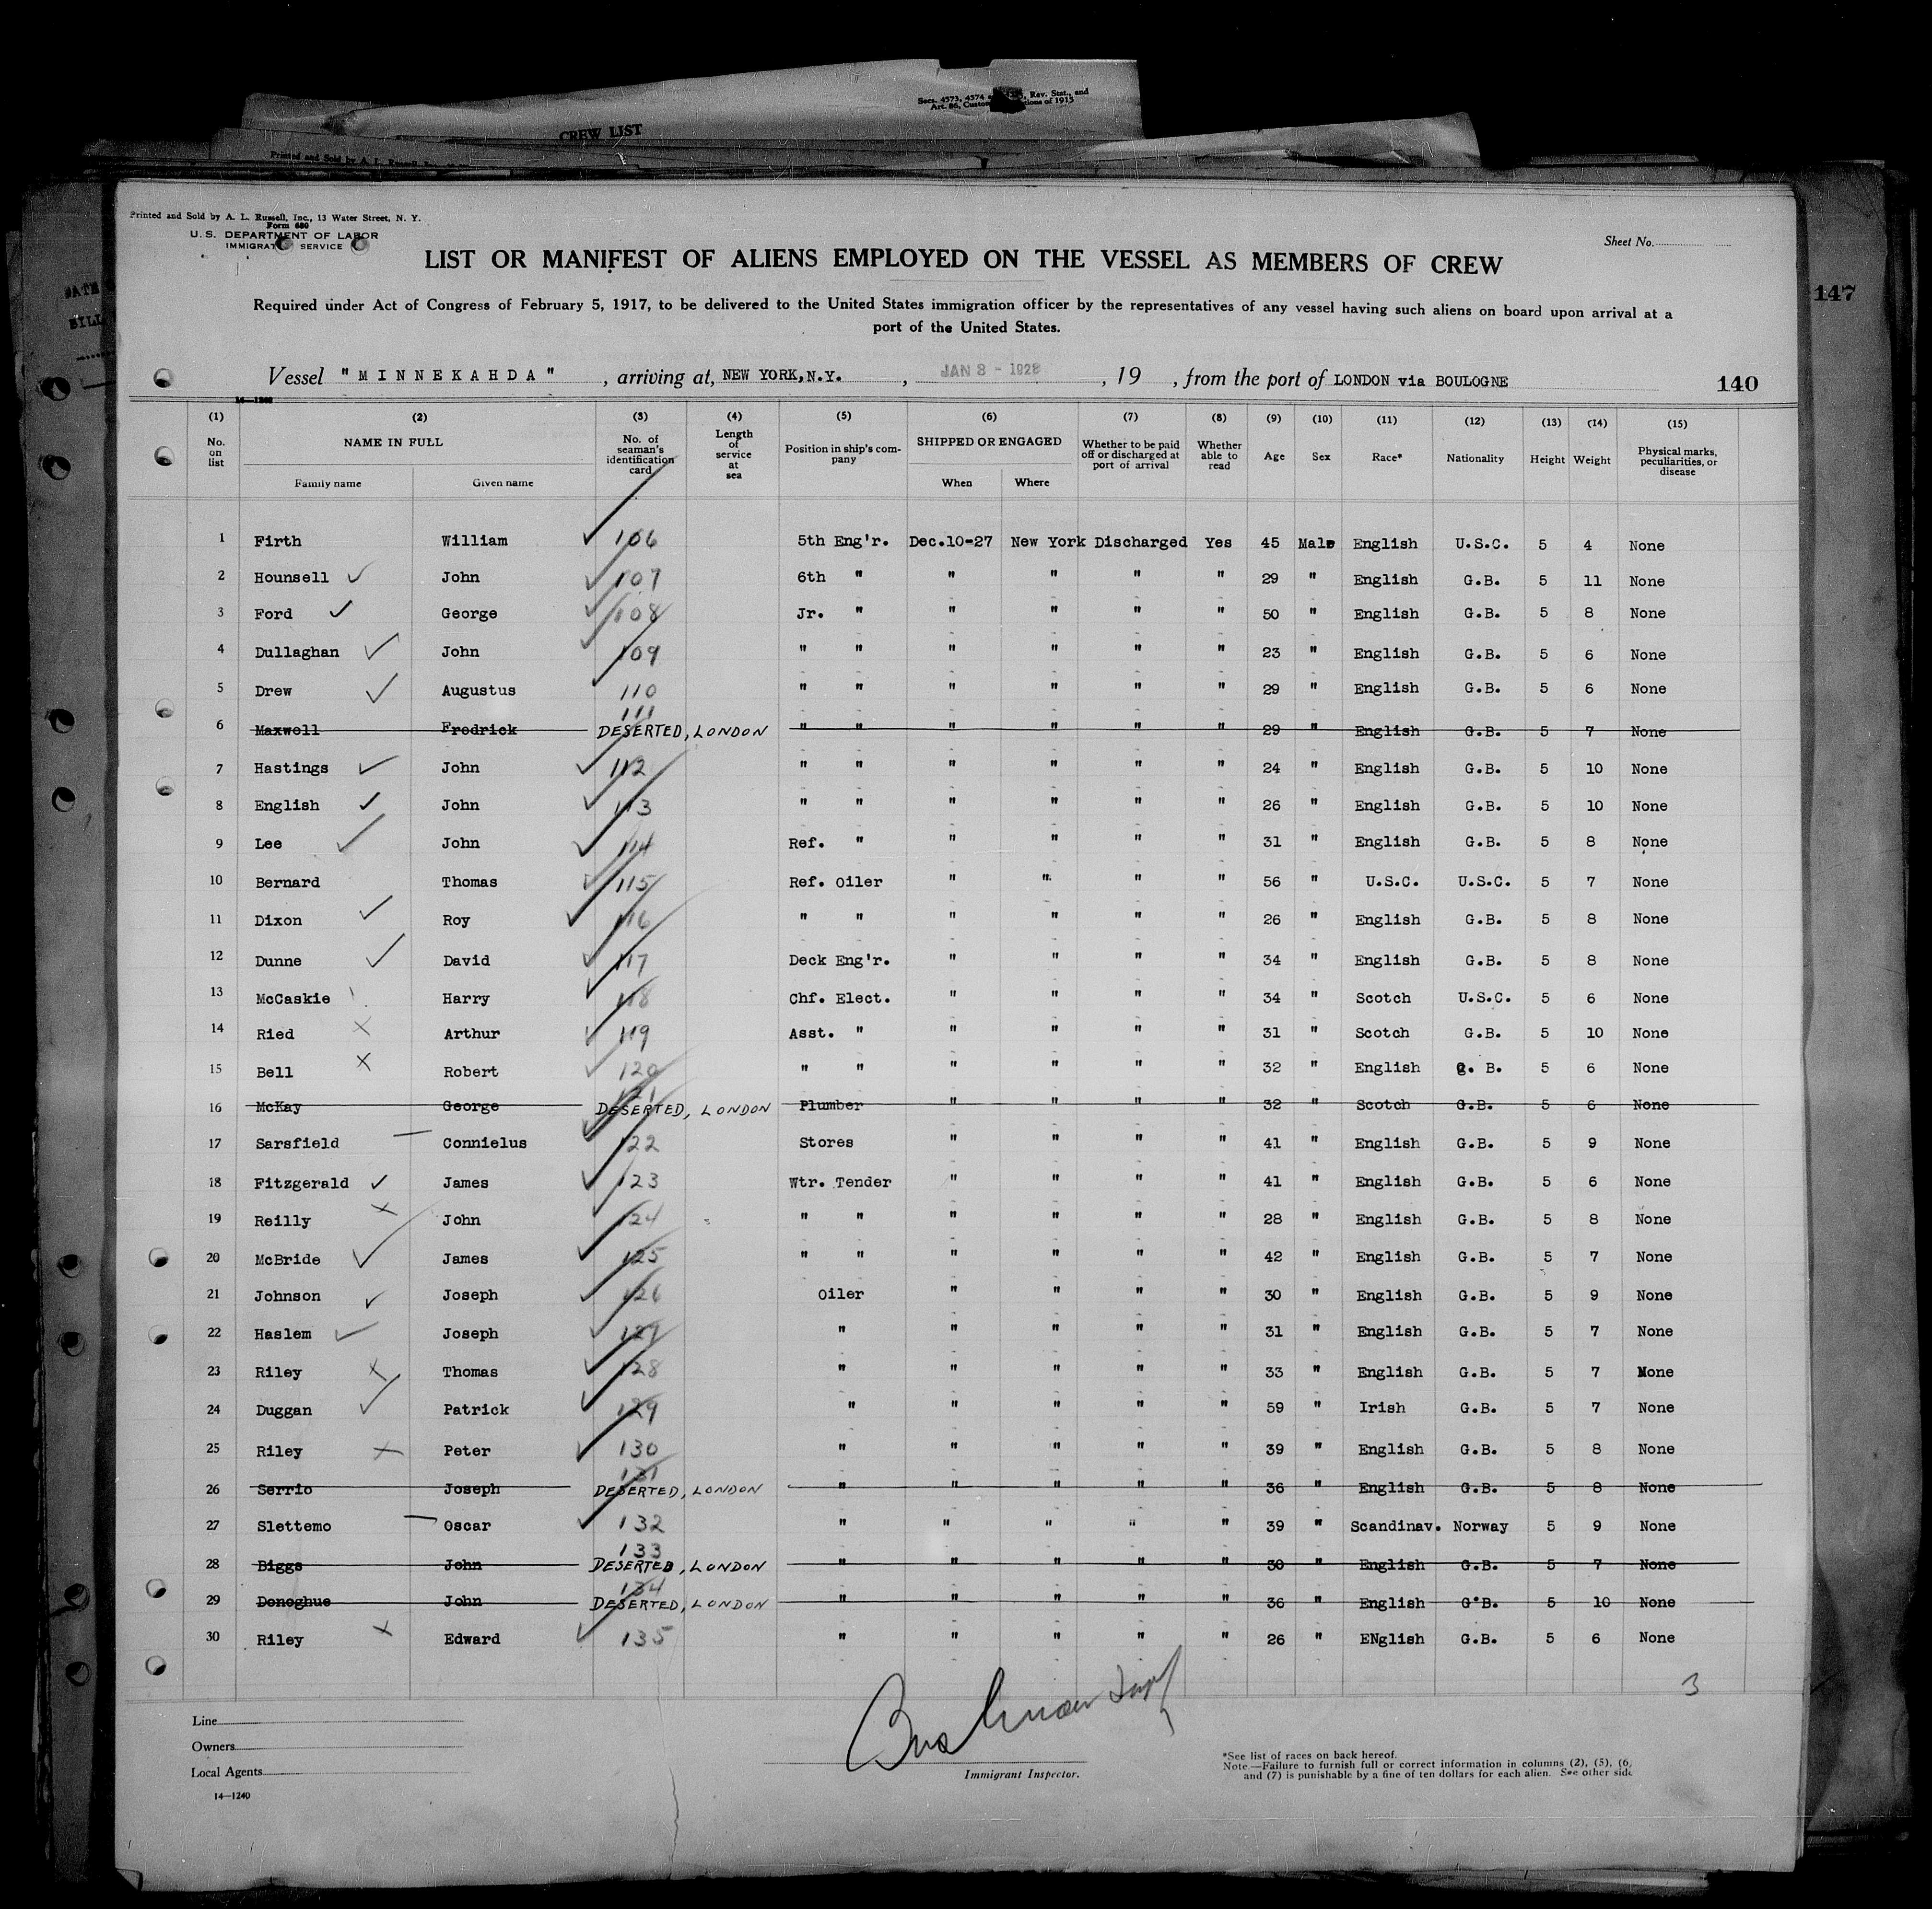 Secs. 4573, 4574 Rev. Stat., and
Art. 86, Customs of 1915
CREW LIST
Printed and Sold by A. L.
Printed and Sold by A. L. Russell, Inc., 13 Water Street, N. Y.
Form 680
U. S. DEPARTMENT OF LABOR
IMMIGRATION SERVICE
Sheet No.
LIST OR MANIFEST OF ALIENS EMPLOYED ON THE VESSEL AS MEMBERS OF CREW
147
Required under Act of Congress of February 5, 1917, to be delivered to the United States immigration officer by the representatives of any vessel having such aliens on board upon arrival at a
port of the United States.
Vessel "MINNEKAHDA", arriving at, NEW YORK, N.Y., JAN 3 - 1928, 19 , from the port of LONDON via BOULOGNE 140
(1) (2) (3) (4) (5) (6) (7) (8) (9) (10) (11) (12) (13) (14) (15)
No. on list NAME IN FULL No. of seaman's identification card Length of service at sea Position in ship's company SHIPPED OR ENGAGED Whether to be paid off or discharged at port of arrival Whether able to read Age Sex Race* Nationality Height Weight Physical marks, peculiarities, or disease
Family name Given name When Where
1 Firth William 106 5th Eng'r. Dec.10-27 New York Discharged Yes 45 Male English U.S.C. 5 4 None
2 Hounsell John 107 6th " " " " " 29 " English G.B. 5 11 None
3 Ford George 108 Jr. " " " " " 50 " English G.B. 5 8 None
4 Dullaghan John 109 " " " " " " 23 " English G.B. 5 6 None
5 Drew Augustus 110 " " " " " " 29 " English G.B. 5 6 None
6 Maxwell Fredrick 111 DESERTED, LONDON " " " " " " 29 " English G.B. 5 7 None
7 Hastings John 112 " " " " " " 24 " English G.B. 5 10 None
8 English John 113 " " " " " " 26 " English G.B. 5 10 None
9 Lee John 114 Ref. " " " " " 31 " English G.B. 5 8 None
10 Bernard Thomas 115 Ref. Oiler " " " " 56 " U.S.C. U.S.C. 5 7 None
11 Dixon Roy 116 " " " " " " 26 " English G.B. 5 8 None
12 Dunne David 117 Deck Eng'r. " " " " 34 " English G.B. 5 8 None
13 McCaskie Harry 118 Chf. Elect. " " " " 34 " Scotch U.S.C. 5 6 None
14 Ried Arthur 119 Asst. " " " " " 31 " Scotch G.B. 5 10 None
15 Bell Robert 120 " " " " " " 32 " English G. B. 5 6 None
16 McKay George 121 DESERTED, LONDON Plumber " " " " 32 " Scotch G.B. 5 6 None
17 Sarsfield Connielus 122 Stores " " " " 41 " English G.B. 5 9 None
18 Fitzgerald James 123 Wtr. Tender " " " " 41 " English G.B. 5 6 None
19 Reilly John 124 " " " " " " 28 " English G.B. 5 8 None
20 McBride James 125 " " " " " " 42 " English G.B. 5 7 None
21 Johnson Joseph 126 Oiler " " " " 30 " English G.B. 5 9 None
22 Haslem Joseph 127 " " " " " 31 " English G.B. 5 7 None
23 Riley Thomas 128 " " " " " 33 " English G.B. 5 7 None
24 Duggan Patrick 129 " " " " " 59 " Irish G.B. 5 7 None
25 Riley Peter 130 " " " " " 39 " English G.B. 5 8 None
26 Serrio Joseph 131 DESERTED, LONDON " " " " " 36 " English G.B. 5 8 None
27 Slettemo Oscar 132 " " " " " 39 " Scandinav. Norway 5 9 None
28 Biggs John 133 DESERTED, LONDON " " " " " 30 " English G.B. 5 7 None
29 Donoghue John 134 DESERTED, LONDON " " " " " 36 " English G.B. 5 10 None
30 Riley Edward 135 " " " " " 26 " ENglish G.B. 5 6 None
3
Line
Owners
Local Agents
Immigrant Inspector.
*See list of races on back hereof.
Note.—Failure to furnish full or correct information in columns (2), (5), (6,
and (7) is punishable by a fine of ten dollars for each alien. See other side
14—1240